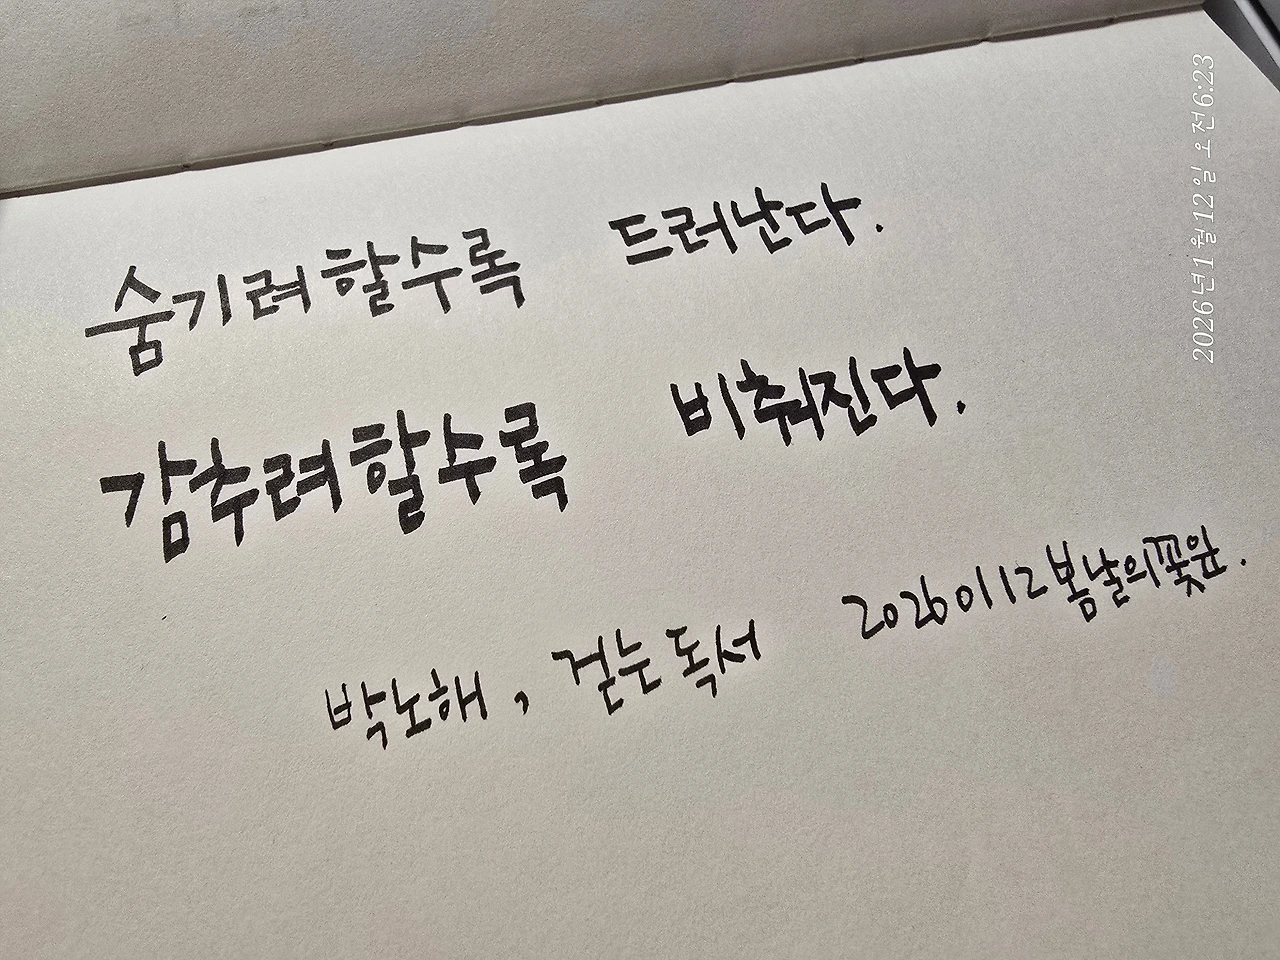 숨기려 할수록 드러난다.
감추려 할수록 비춰진다.
박노해, 걷는 독서 20260112 봄날의꽃잎.
2026년 1월 12일 오전 6:23